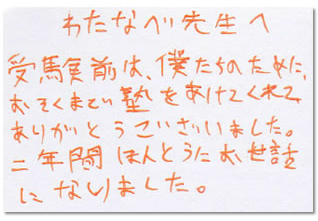 わたなべ先生へ
受験前は、僕たちのために、
おそくまで塾をあけてくれて
ありがとうございました。
二年間ほんとうにお世話
になりました。